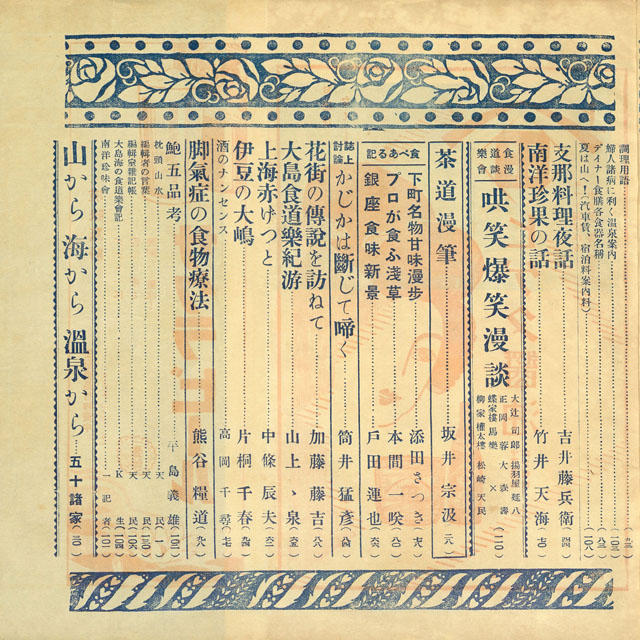 調理用語
婦人諸病に利く溫泉案内
デイナー食膳各食器名稱
夏は山へ!(汽車賃、宿泊料案内料)
支那料理夜話 吉井藤兵衞
南洋珍果の話 竹井天海
食道樂漫談會 哄笑爆笑漫談
大辻司郎 揚羽屋延八
正岡蓉 大森壽
蝶家樓馬樂 ×
柳家權太樓 松崎天民
茶道漫筆 坂井宗汲
食べあるき記
下町名物甘味漫步 添田さつき
プロが食ふ淺草 本間一咲
銀座食味新景 戶田連也
誌上討論 かじかは斷じて啼く 筒井猛彥
花街の傳說を訪ねて 加藤藤吉
大島食道樂紀游 山上ゝ泉
上海赤げつと 中條辰夫
伊豆の大嶋 片桐千春
酒のナンセンス 高岡千尋
脚氣症の食物療法 熊谷糧道
鮑五品考 平島義雄
枕頭山水 天民
編輯者の言葉 天民
編輯餘錄雜記帳 天民
大島海の食道樂會記 K生
南洋珍味會 一記者
山から海から溫泉から 五十諸家